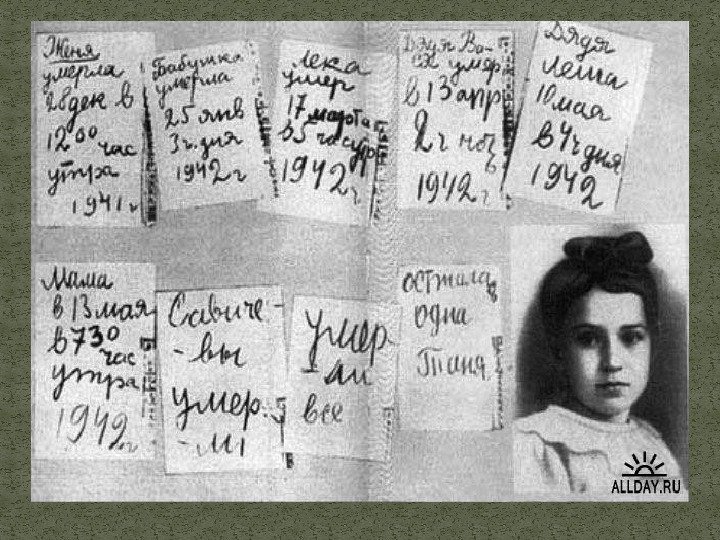 Женя
умерла
28 дек в
12 00 час
утра
1941 г
Бабушка
умерла
25 янв
3 ч. дня
1942 г
Лека
умер
17 марта
в 5 час утр
1942 г
Дядя Ва-
ся умер
в 13 апр
2 ч ноч
1942 г
Дядя
Леша
10 мая
в 4 ч дня
1942
Мама
в 13 мая
в 7 30
час
утра
1942 г
Савиче-
-вы
умер-
-ли
умер-
-ли
все
осталась
одна
Таня
ALLDAY.RU